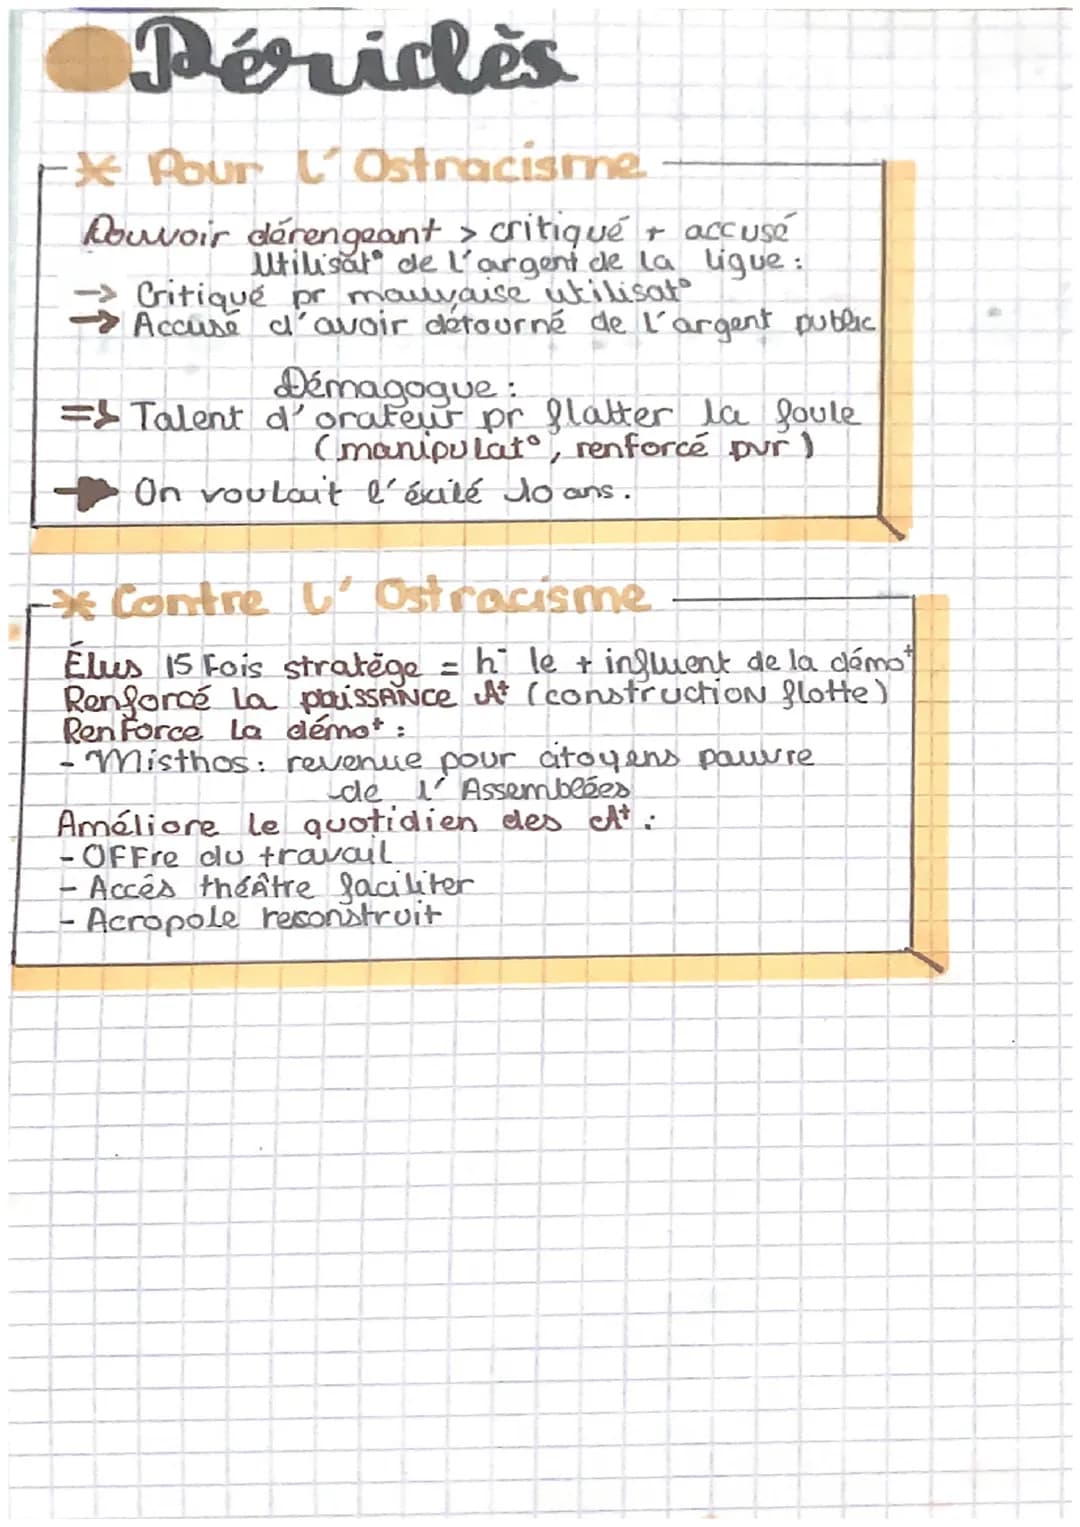 Périclès
* Pour l'Ostracisme
Pouvoir dérengeant > critiqué + accusé
Utilisat° de l'argent de la ligue :
-> Critiqué pr mauvaise utilisat°
-> Accusé d'avoir détourné de l'argent public
Démagogue :
=> Talent d'orateur pr flatter la foule
(manipulat°, renforcé pvr)
→ On voulait l'éxilé 10 ans.
* Contre l'Ostracisme
Élus 15 Fois stratège = h- le + influent de la démot
Renforcé la puissance At (construction flotte)
Renforce la démot :
- Misthos : revenue pour citoyens pauvre
de l'Assemblées
Améliore le quotidien des At :
- Offre du travail
- Accés théâtre faciliter
- Acropole reconstruit